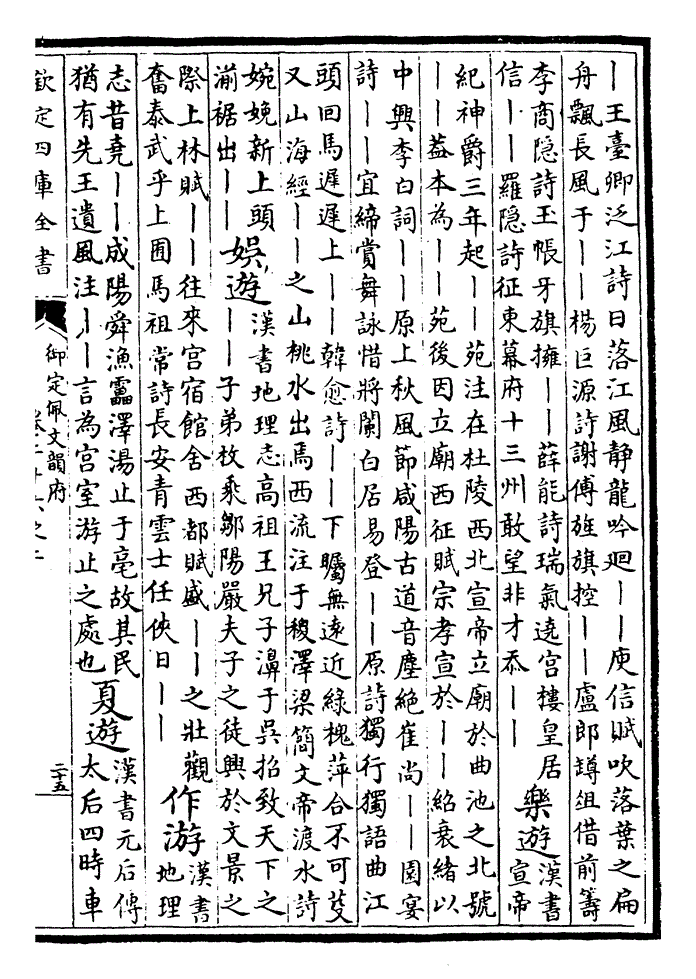 ｜王臺卿泛江詩日落江風静龍吟迴｜｜庾信賦吹落葉之扁
舟飄長風于｜｜楊巨源詩謝傅旌旗控｜｜盧郎罇俎借前籌
李商隐詩玉帳牙旗擁｜｜薛能詩瑞氣遶宫樓皇居
信｜｜羅隐詩征東幕府十三州敢望非才忝｜｜
樂遊
漢書
宣帝
紀神爵三年起｜｜苑注在杜陵西北宣帝立廟於曲池之北號
｜｜葢本為｜｜苑後因立廟西征賦宗孝宣於｜｜紹衰緒以
中興李白詞｜｜原上秋風節咸陽古道音塵絶崔尚｜｜園宴
詩｜｜宜締賞舞詠惜將闌白居易登｜｜原詩獨行獨語曲江
頭回馬遲遲上｜｜韓愈詩｜｜下矚無遠近緑槐萍合不可芟
又山海經｜｜之山桃水出焉西流注于稷澤梁簡文帝渡水詩
婉娩新上頭
湔裾出｜｜
娯遊
漢書地理志高祖王兄子濞于吳招致天下之
｜｜子弟枚乘鄒陽嚴夫子之徒興於文景之
際上林賦｜｜往來宫宿館舍西都賦盛｜｜之壯觀
奮泰武乎上囿馬祖常詩長安青雲士任俠日｜｜
作游
漢書
地理
志昔堯｜｜成陽舜漁靁澤湯止于亳故其民
猶有先王遺風注｜｜言為宫室游止之處也
夏遊
漢書元后傳
太后四時車
欽定四庫全書
御定佩文韻府
二十五